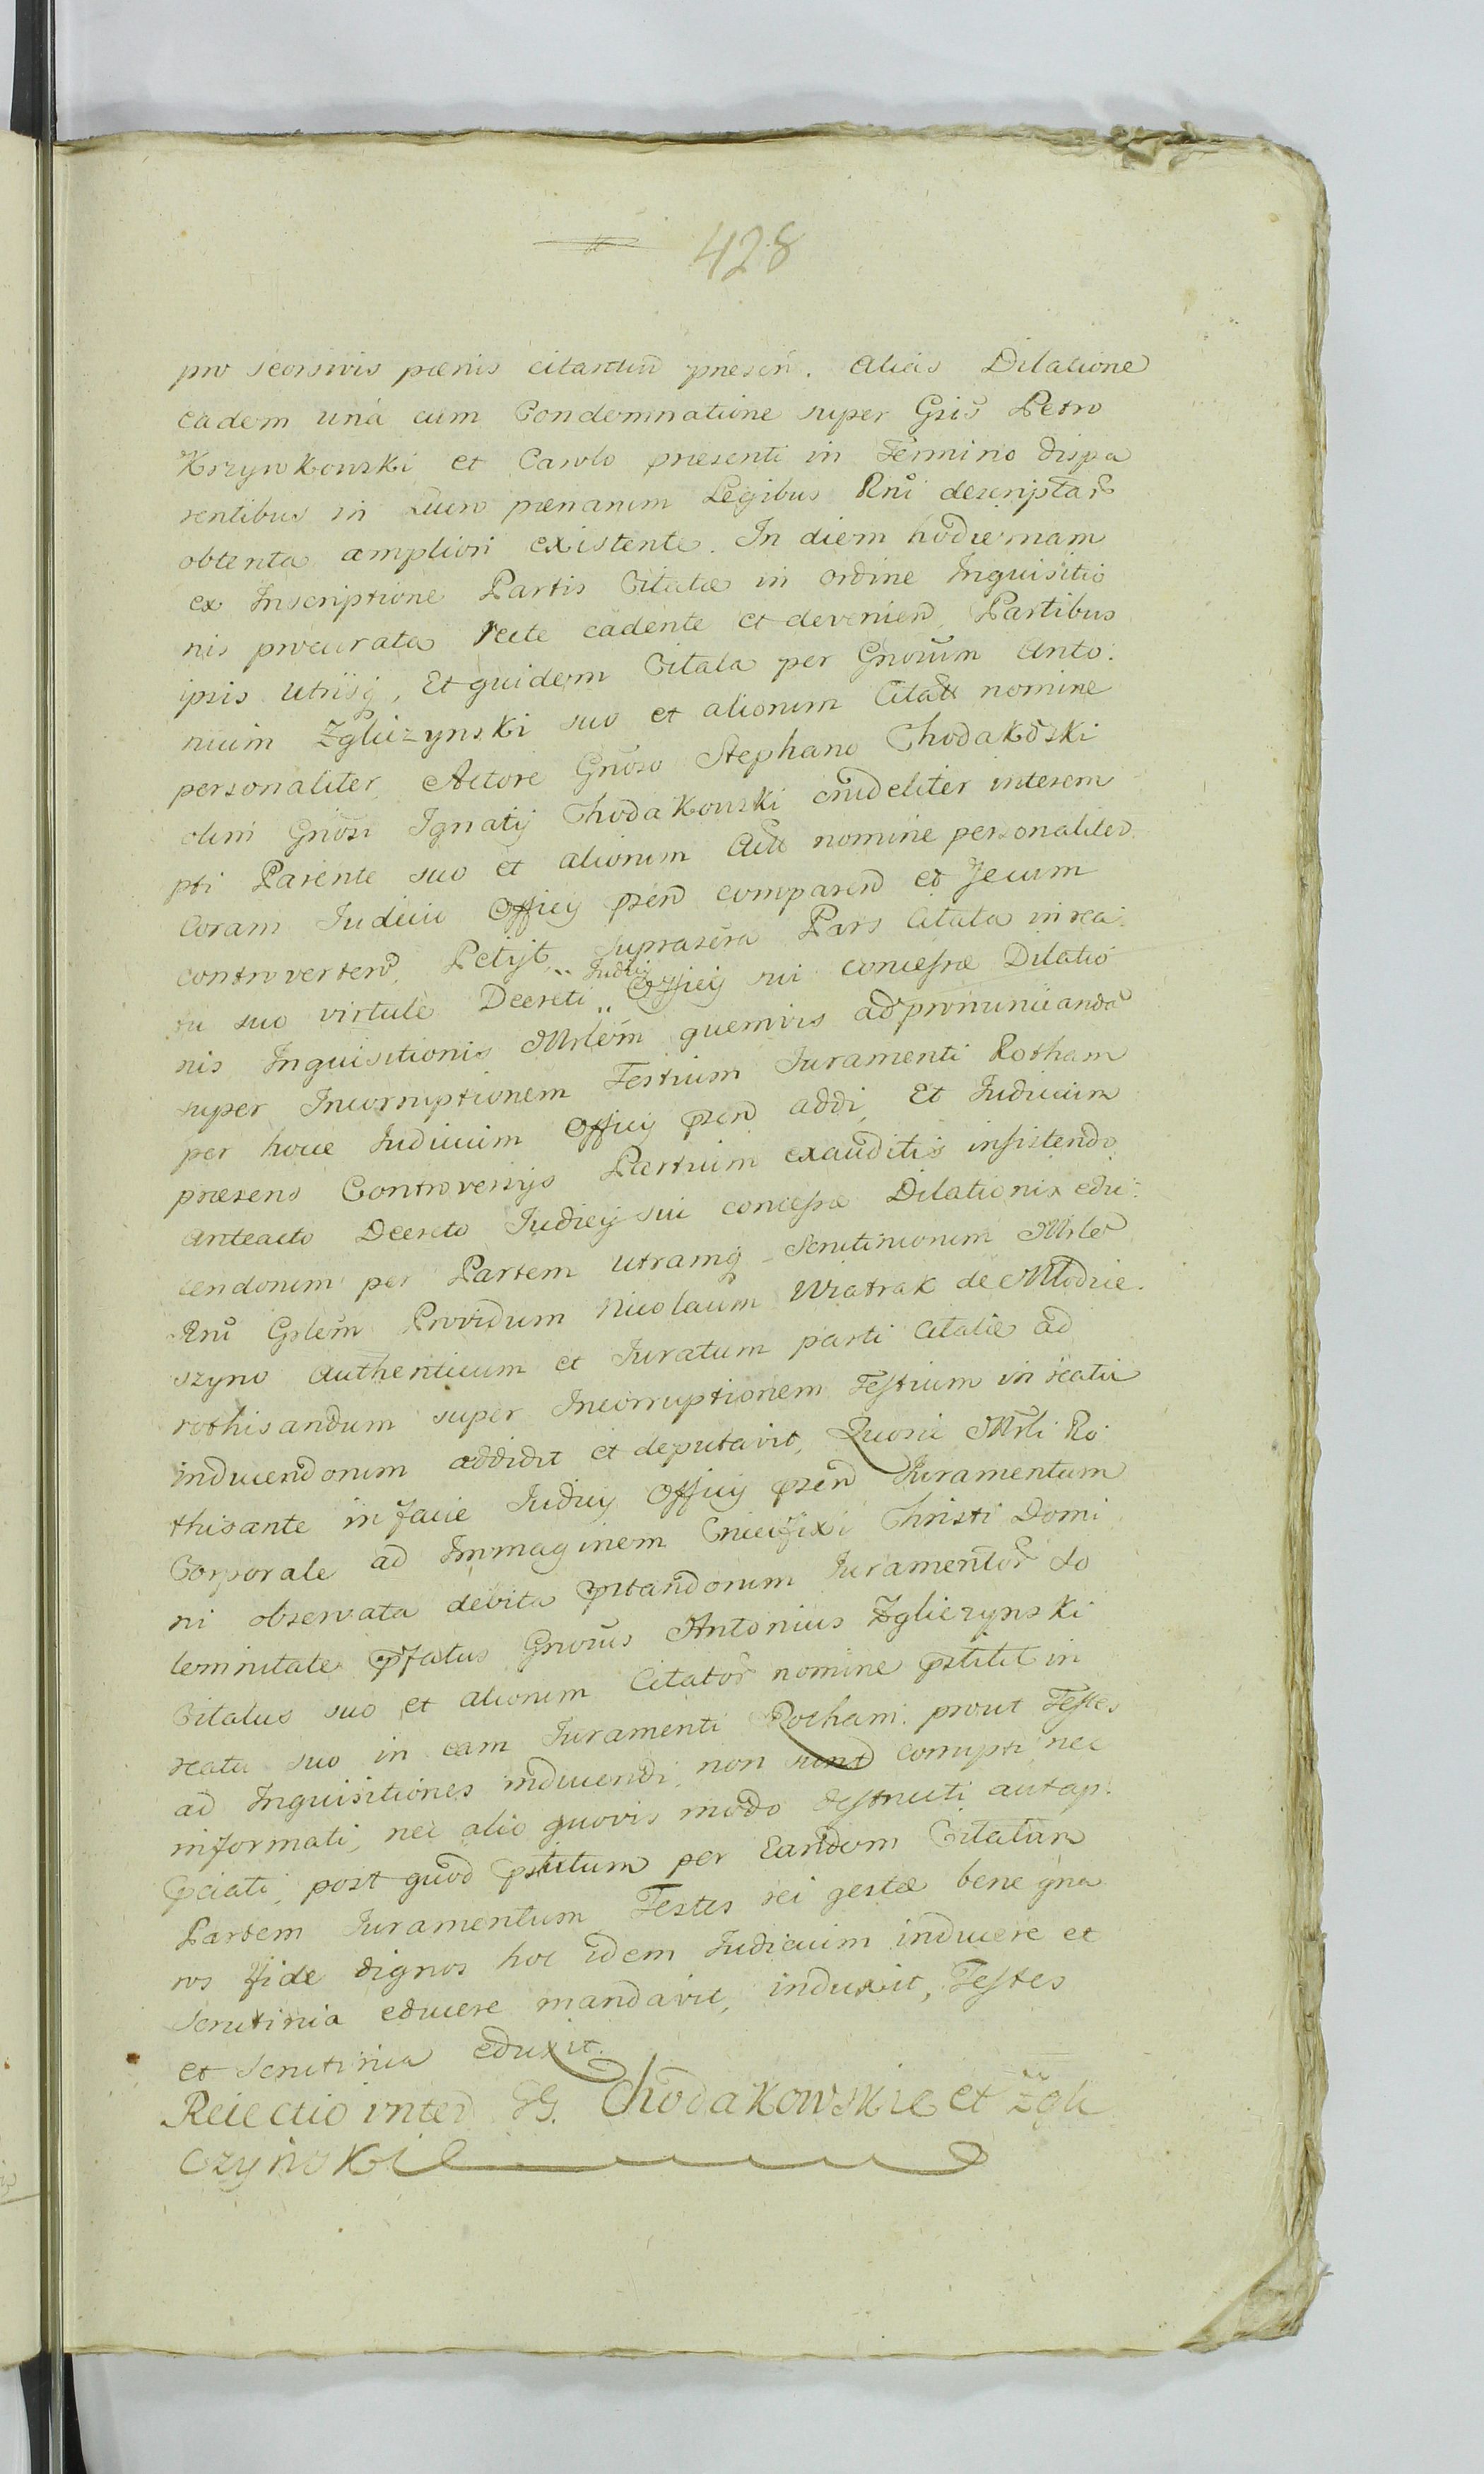 428
pro seorsivis pœnis citantūd presen̄. Alias Dilatione
eadem unà cum Condemnatione super Gsis Petro
Krzywkowski et Carolo presenti in Termino dispa
rentibus in Lucro pœnarum Legibus Rni descriptar̄
obtenta ampliori existente. In diem hodiernam
ex Inscriptione Partis Citatæ in ordine Inquisitio
nis procurata recte cadente et devenien̄. Partibus
ipsis utrisq, Et quidem Citata per Gnosum Anto:
nium Zgliczynski suo et aliorum Citatt nomine
personaliter, Actore Gnoso Stephano Chodakōski
olim Gnosi Ignatij Chodakowski crudeliter interem
pti Parente suo et aliorum Actt nomine personaliter
Coram Judicio Officij psen̄ comparen̄ et secum
controverten̄. Petijt, suprascra Pars Citata in rea:
tu suo virtute Decreti Judicij Officij sui concessæ Dilatio
nis Inquisitionis Mrlem quemvis ad pronunciandā
super Incorruptionem Testium Juramenti Rotham
per hocce Judicium Officij psen̄ addi, Et Judicium
præsens Controversijs Partium exauditis insistendo
anteacto Decreto Judicij sui concessæ Dilationis edu:
cendorum per Partem utramq Scrutiniorum Mrlem
Rni Gnlem Providum Nicolaum Wiatrak de Mlodzie:
szyno Authenticum et Juratum parti Citatæ ad
rothisandum super Incorruptionem Testium in reatu
inducendorum addidit et deputavit, Quosic Mrli Ro
thisante in facie Judicij Officij psen̄ Juramentum
Corporale ad Immaginem Crucifixi Christi Domi
ni observata debita pstandorum Juramentor̄ so
lemnitate pfatus Gnosus Antonius Zgliczynski
Citatus suo et aliorum Citator̄ nomine pstitit in
reatu suo in eam Juramenti Rotham. prout Testes
ad Inquisitiones inducendi, non sunt corrupti, nec
informati, nec alio quovis modo destructi aut ap:
pciati, post quod pstitum per Eandem Citatam
Partem Juramentum Testes rei gestæ bene gna
ros fide dignos hoc idem Judicium inducere et
Scrutinia educere mandavit, induxit, Testes
et Scrutinia eduxit.
Reiectio inter GG. Chodakowskie et Zgli
czyńskie